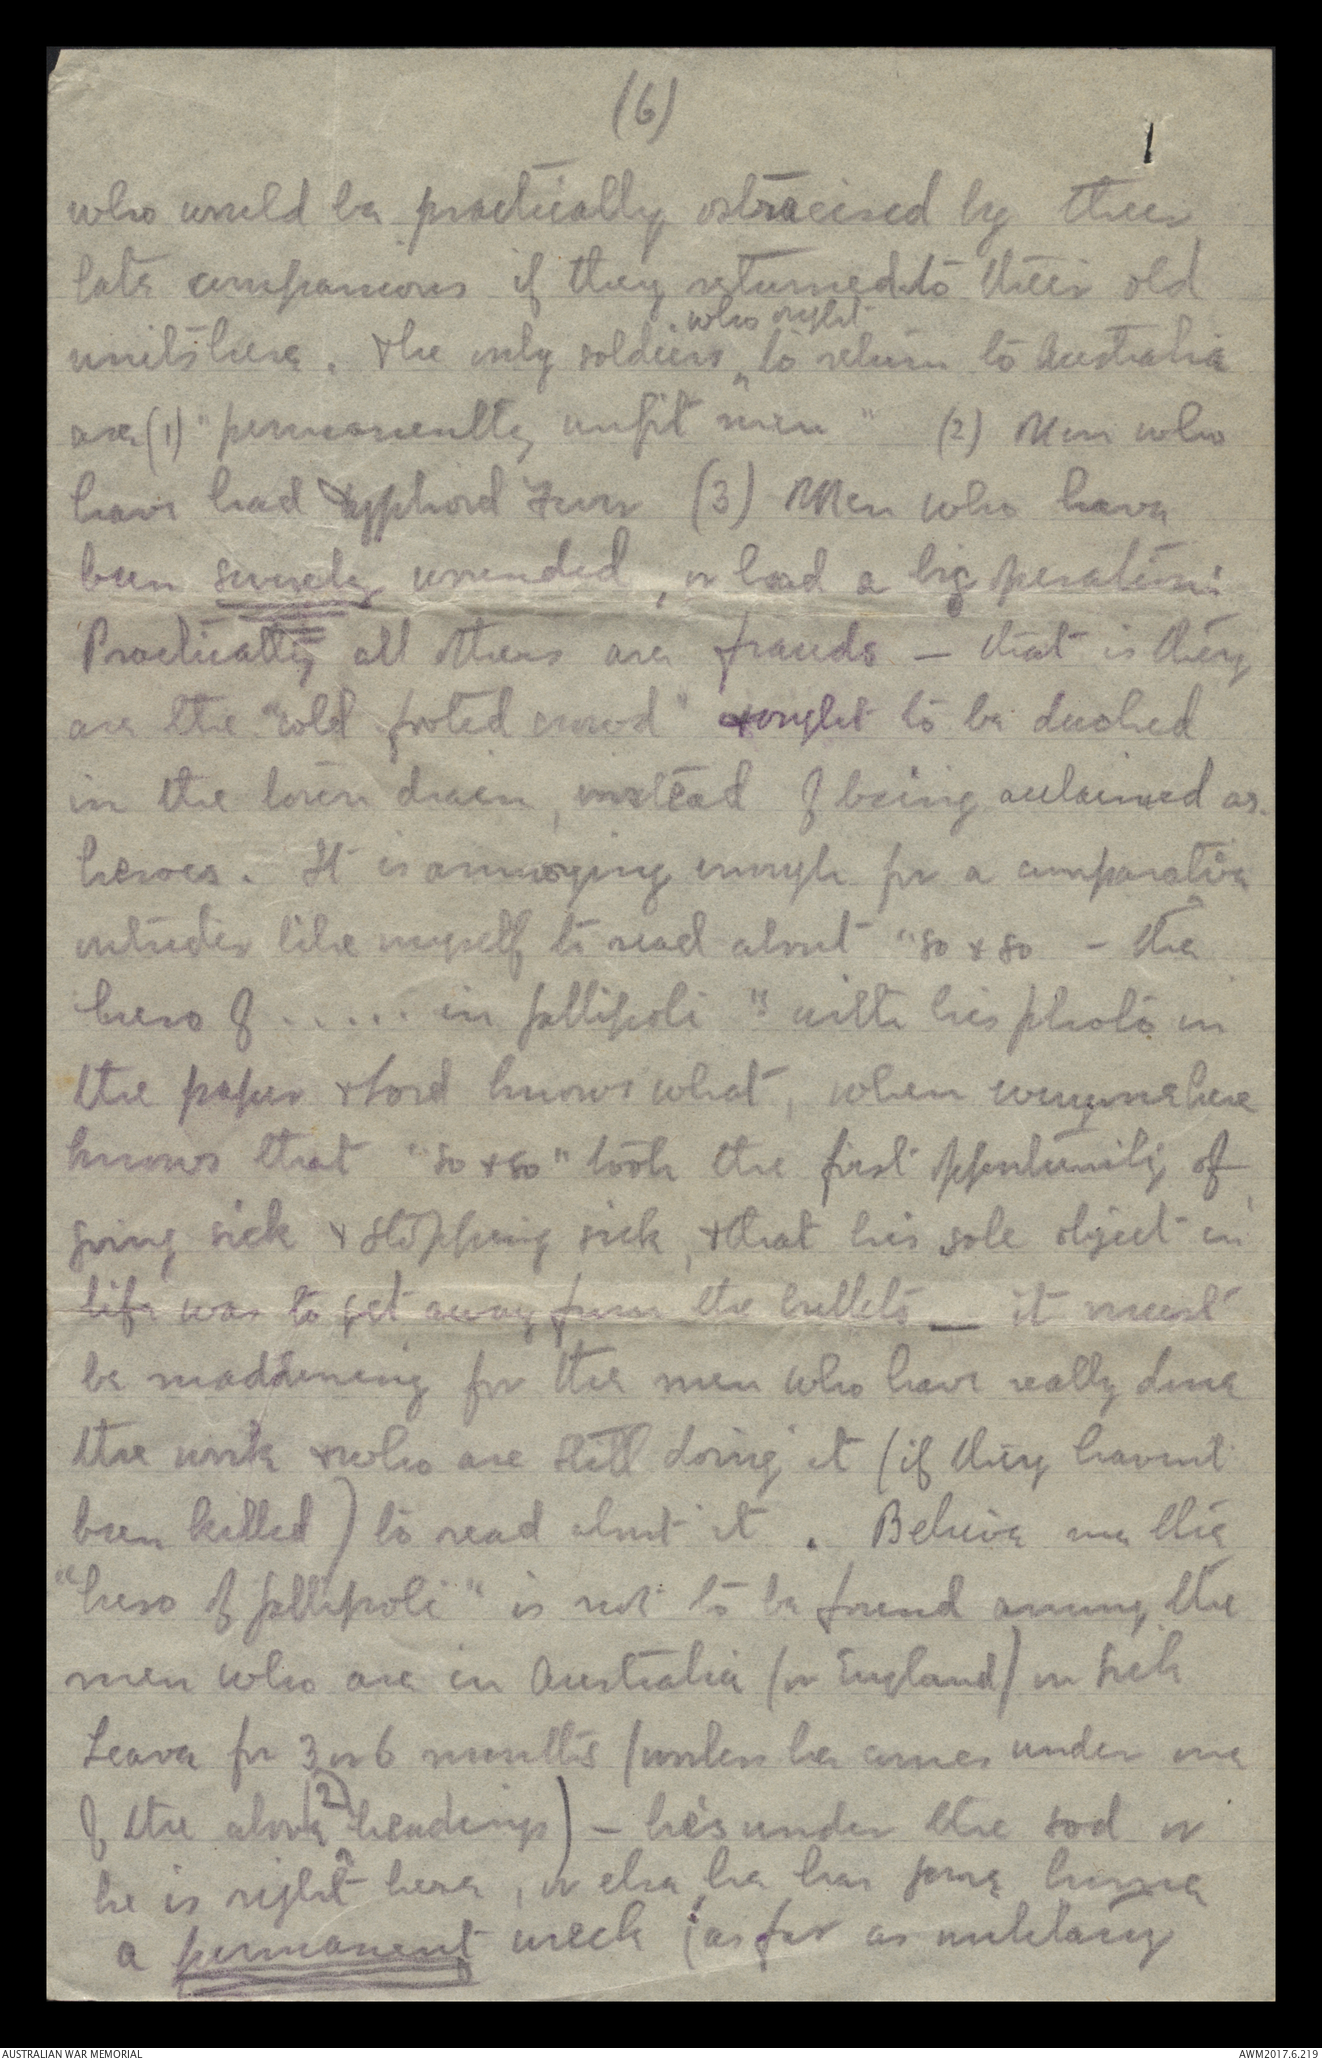 (6)
who would be practically ostracised by their
late companions if they returned to their old
who ought
units here. The only soldiers to return to Australia
are (1) "permanently unfit men" (2) Men who
have had Typhoid Fever (3) Men who have
been severely wounded, or had a big operation.
Practically all others are frauds - that is they
are the "cold footed crowd" & ought to be ducked
in the town drain, instead of being acclaimed as
heroes. It is annoying enough for a comparative
outsider like myself to read about "so & so - the
hero of ..... in Gallipoli" with his photo in
the paper & Lord knows what, when everyone here
knows that "so & so" took the first opportunity of
going sick & stopping sick, & that his sole object in
life was to get away from the bullets - it must
be maddening for the men who have really done
the work & who are still doing it (if they havent
been killed) to read about it. Believe me the
"hero of Gallipoli" is not to be found among the
men who are in Australia (or England) on Sick
Leave for 3 or 6 months (unless he comes under one
of the above (2) headings) - he's under the sod or
he is right here, or else he has gone home
a permanent wreck (as far as military
AUSTRALIAN WAR MEMORIAL
AWM2017.6.219